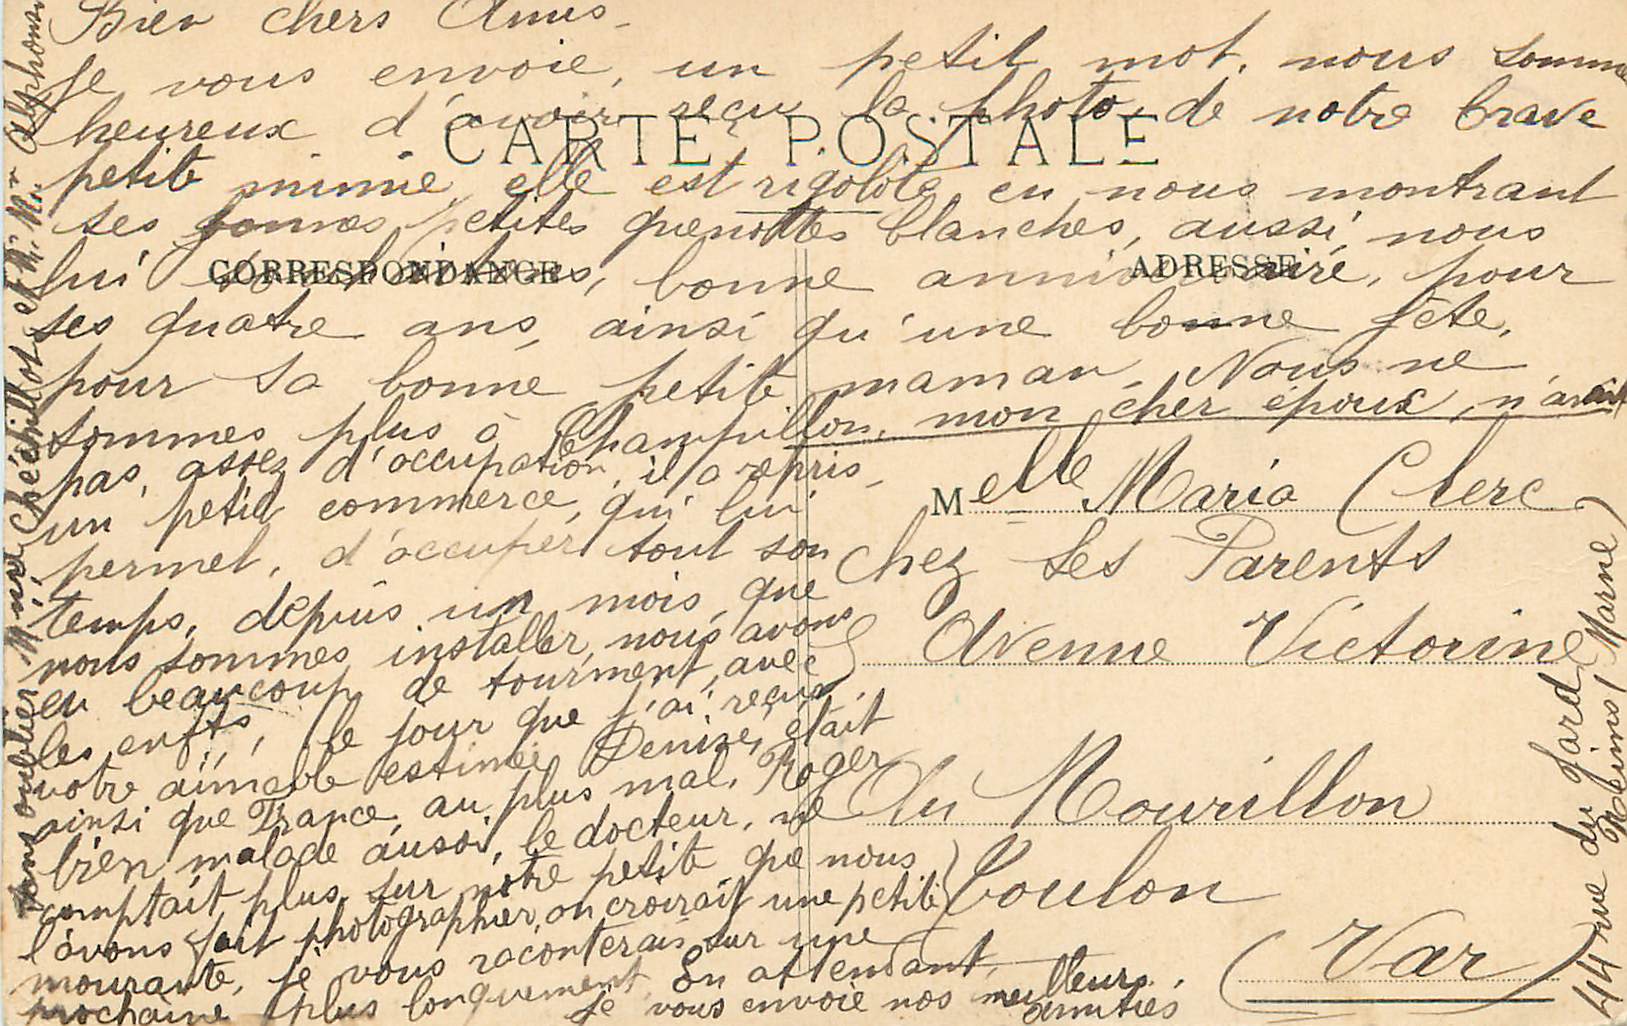 Bien chers Amis -
Je vous envoie, un petit mot, nous somme
heureux d'avoir reçu la photo, de notre brave
CARTE POSTALE
petite mimie, elle est rigolote en nous montrant
ses petites quenottes blanches, aussi nous
CORRESPONDANCE
ADRESSE
lui bonne anniversaire, pour
ses quatre ans, ainsi qu'une bonne fête,
pour sa bonne petite maman - Nous ne
sommes plus à Champillon, mon cher époux, n'avait
pas, assez d'occupation, il a repris -
un petit commerce, qui lui
permet, d'occuper tout son
temps, depuis un mois, que
nous sommes installer, nous avons
eu beaucoup de tourment, avec
les enfts, le jour que j'ai reçu
votre aimable estimée Denise, était
ainsi que France, au plus mal, Roger
bien malade aussi, le docteur, ne
comptait plus, sur notre petite que nous
l'avons fait photographier, on croirait une petite
mourante, je vous raconterais sur une
prochaine plus longuement. En attendant,
je vous envoie nos meilleurs
amitiés
sans oublier Mme Chéchillot et Mr Alphonse
Melle Maria Clerc
chez ses Parents
Avenue Victorine
Du Mourillon
Toulon
(Var)
44 rue du Jard
Reims (Marne)